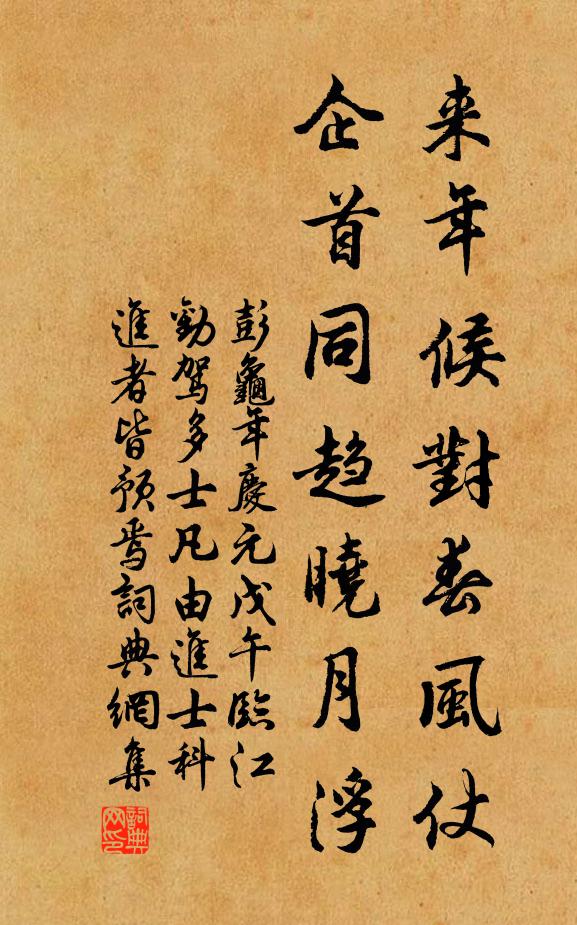 来年候對春風仗
企首同趨曉月浮
彭龜年慶元戊午臨江
勸駕多士凡由進士科
進者皆預焉詞典網集
詞典网印